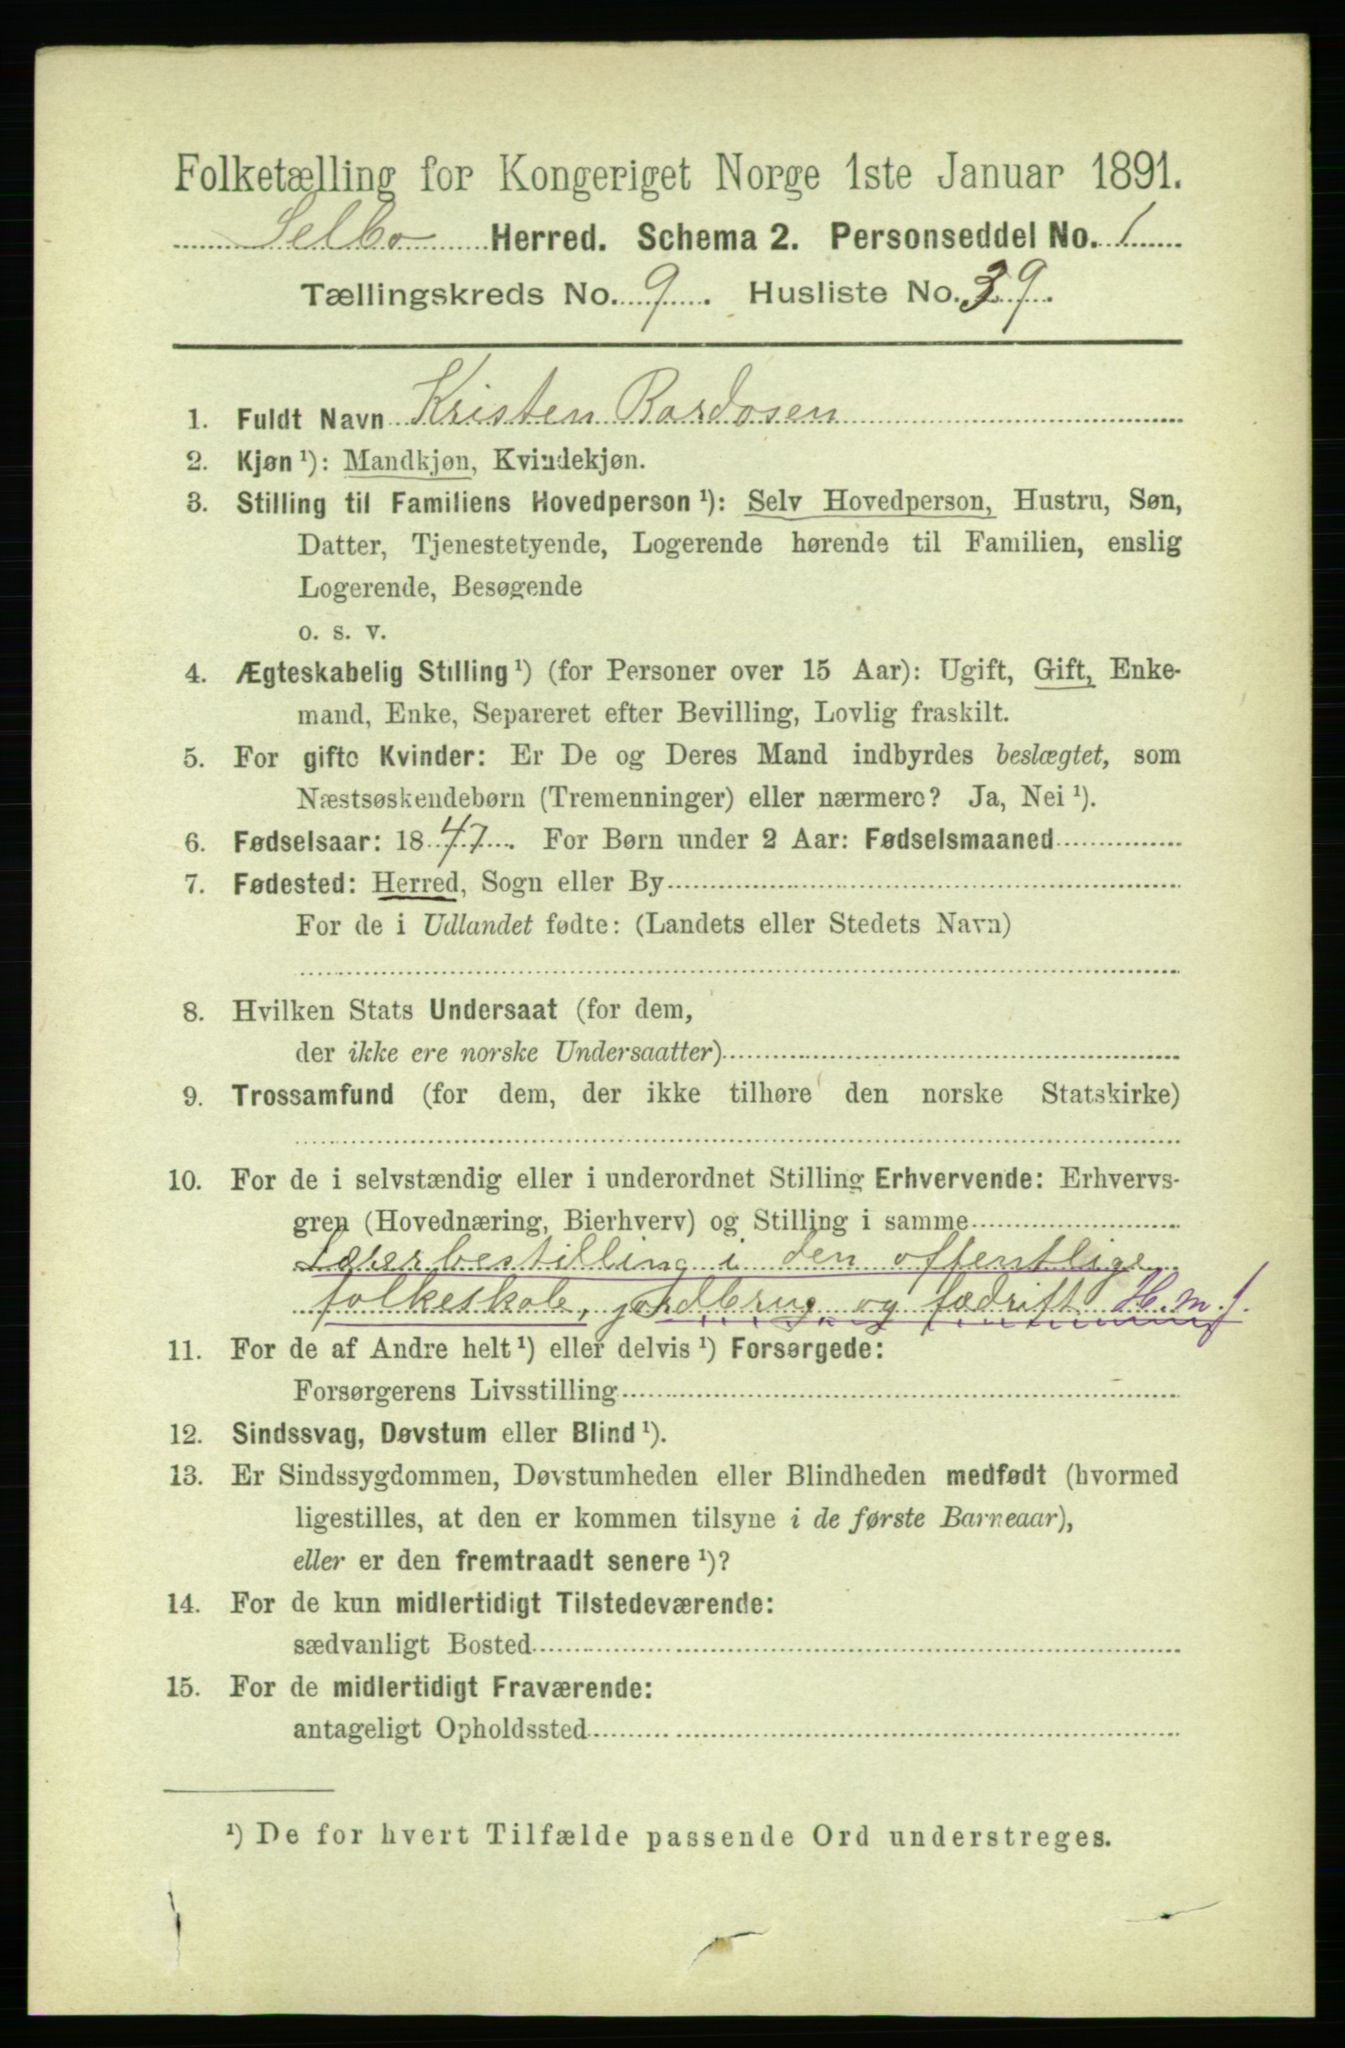 Folketælling for Kongeriget Norge 1ste Januar 1891.
Selbo Herred. Schema 2. Personseddel No. 1
Tællingskreds No. 9. Husliste No. 39.
1. Fuldt Navn Kristen Bardosen
2. Kjøn ¹): Mandkjøn, Kvindekjøn.
3. Stilling til Familiens Hovedperson ¹): Selv Hovedperson, Hustru, Søn,
Datter, Tjenestetyende, Logerende hørende til Familien, enslig
Logerende, Besøgende
o. s. v.
4. Ægteskabelig Stilling ¹) (for Personer over 15 Aar): Ugift, Gift, Enke-
mand, Enke, Separeret efter Bevilling, Lovlig fraskilt.
5. For gifte Kvinder: Er De og Deres Mand indbyrdes beslægtet, som
Næstsøskendebørn (Tremenninger) eller nærmere? Ja, Nei ¹).
6. Fødselsaar: 1847. For Børn under 2 Aar: Fødselsmaaned
7. Fødested: Herred, Sogn eller By
For de i Udlandet fødte: (Landets eller Stedets Navn)
8. Hvilken Stats Undersaat (for dem,
der ikke ere norske Undersaatter)
9. Trossamfund (for dem, der ikke tilhøre den norske Statskirke)
10. For de i selvstændig eller i underordnet Stilling Erhvervende: Erhvervs-
gren (Hovednæring, Bierhverv) og Stilling i samme
Lærerbestilling i den offentlige
folkeskole, jordbrug og fædrift H. m. f.
11. For de af Andre helt ¹) eller delvis ¹) Forsørgede:
Forsørgerens Livsstilling
12. Sindssvag, Døvstum eller Blind ¹).
13. Er Sindssygdommen, Døvstumheden eller Blindheden medfødt (hvormed
ligestilles, at den er kommen tilsyne i de første Barneaar),
eller er den fremtraadt senere ¹)?
14. For de kun midlertidigt Tilstedeværende:
sædvanligt Bosted
15. For de midlertidigt Fraværende:
antageligt Opholdssted
¹) De for hvert Tilfælde passende Ord understreges.